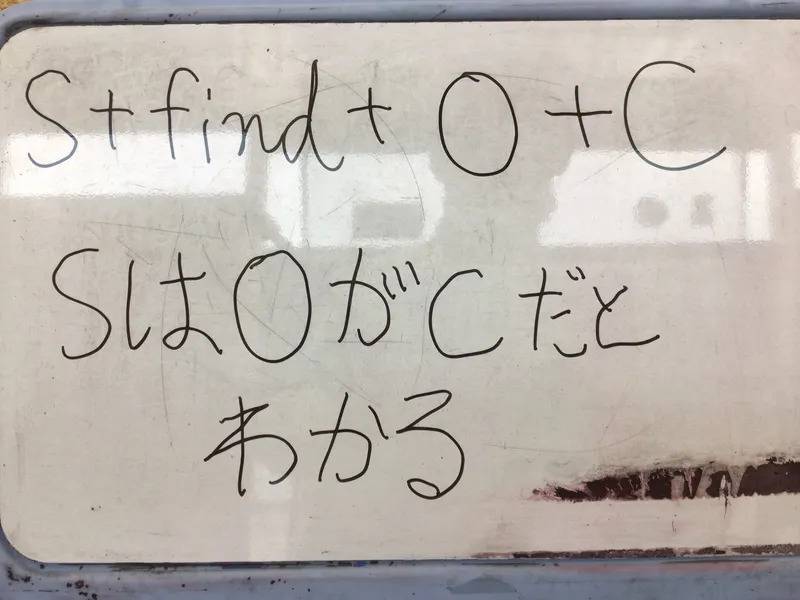 S+find+ O +C
SはOがCだと
わかる